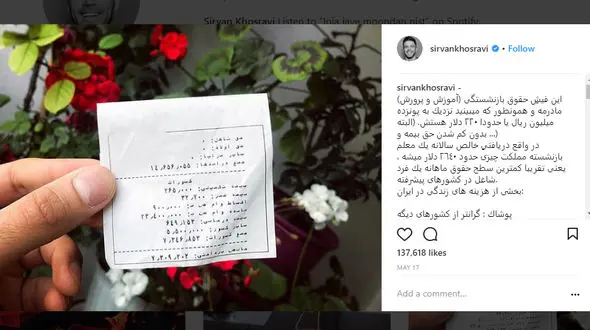 Sirvan Khosravi Listen to "Inja jaye moondan nist" on Spotify.
sirvankhosravi • Follow
sirvankhosravi -
این فیش حقوق بازنشستگی (آموزش و پرورش)
مادرمه و همونطور که میبینید نزدیک به پونزده
میلیون ریال یا حدودا ۲۲۰ دلار هستش. (البته
بدون کم شدن حق بیمه و ...)
در واقع دریافتي خالص سالانه یك معلم
بازنشسته مملکت چیزی حدود ۲٦٤٠ دلار میشه ،
یعنی تقریبا کمترین سطح حقوق ماهانه یك فرد
شاغل در کشورهای پیشرفته.
بخشی از هزینه های زندگی در ایران:
پوشاك : گرانتر از کشورهای دیگه
137,618 likes
MAY 17
Add a comment...
حق شاغل: ۰
حق اولاد: ۰
سایر مزایا: ۰
۱۴,۶۵۶,۰۵۵
کسورات
۲۶۵,۰۰۰
بیمه عمر: ۳۲,۷۰۰
۶۴۹,۱۵۳
سایر کسور: ۵,۵۰۰,۰۰۰
جمع کسورات: ۷,۳۴۶,۸۵۳
۷,۳۰۹,۲۰۲